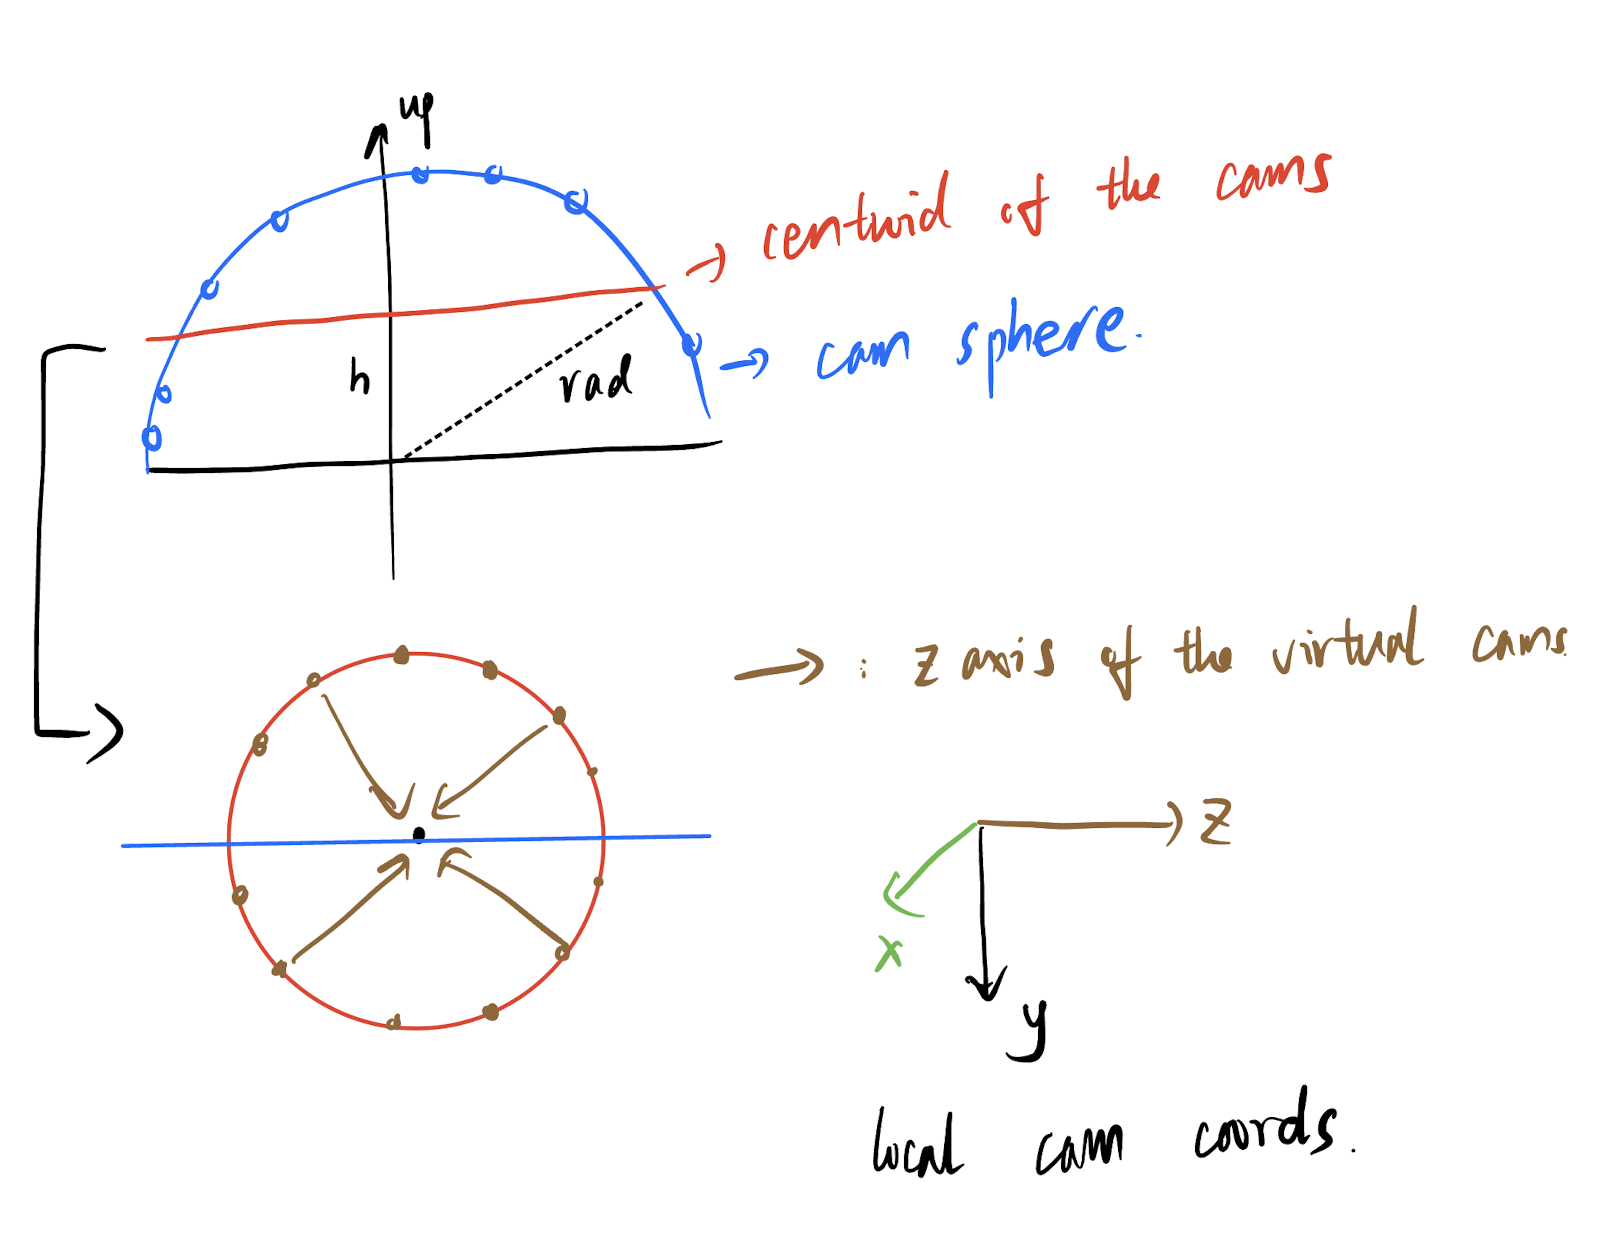 up
→ centroid of the cams
h
rad
→ cam sphere.
→ : z axis of the virtual cams
z
x
y
local cam coords.